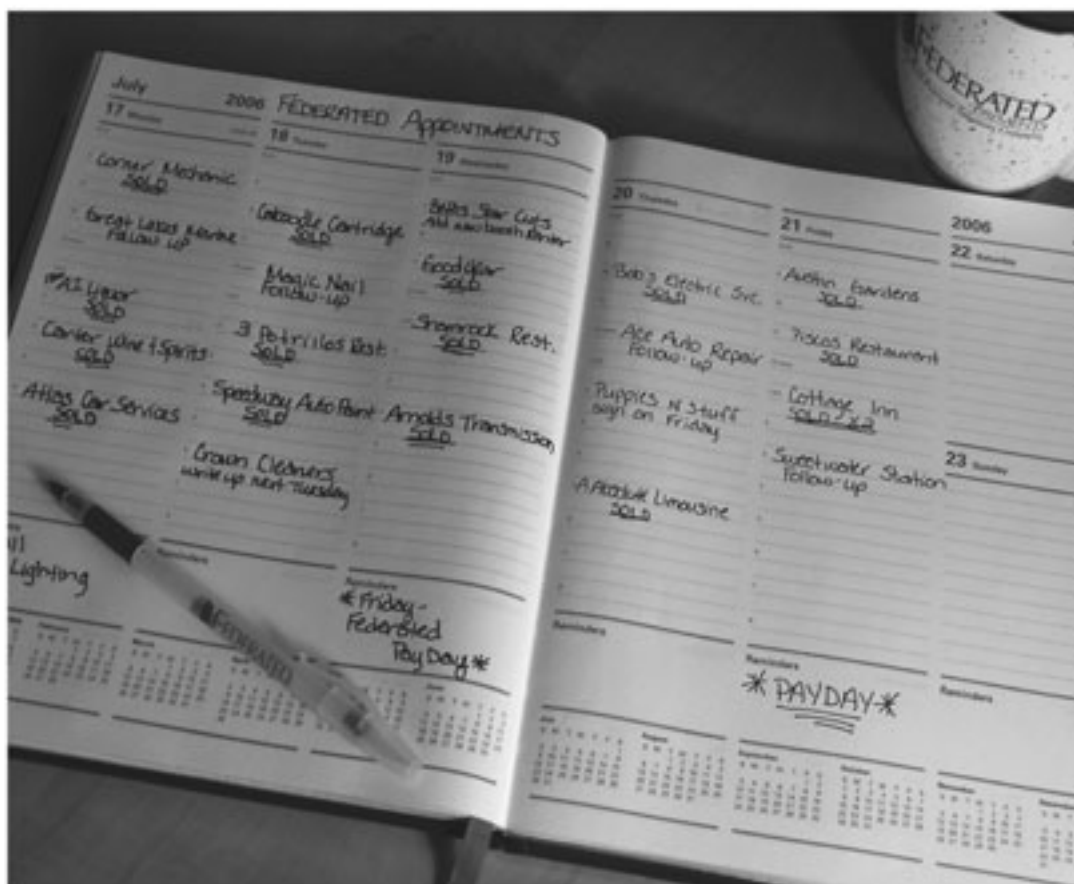 July
2006 FEDERATED APPOINTMENTS
17 Monday
Corner Mechanic
SOLD
Great Lakes Marine
Follow up
SOLD
SOLD
Atlas Car Services
SOLD
Lighting
18 Tuesday
Caboodle Cartridge
SOLD
Magic Nail
Follow-up
3 Potrillos Rest.
SOLD
Speedway Auto Paint
SOLD
Crown Cleaners
write up next Tuesday
Reminders
19 Wednesday
Star Cuts
Goodyear
SOLD
Shamrock Rest.
SOLD
Arnolds Transmission
SOLD
Reminders
*Friday-
Federated
Pay Day*
20 Thursday
Bob's Electric Svc.
SOLD
Ace Auto Repair
Follow-up
Puppies N Stuff
sign on Friday
A Absolute Limousine
SOLD
Reminders
21 Friday
Austin Gardens
SOLD
Restaurant
SOLD
Cottage Inn
SOLD
Sweetwater Station
Follow-up
Reminders
*PAYDAY*
2006
22 Saturday
23 Sunday
Reminders
FEDERATED
FEDERATED